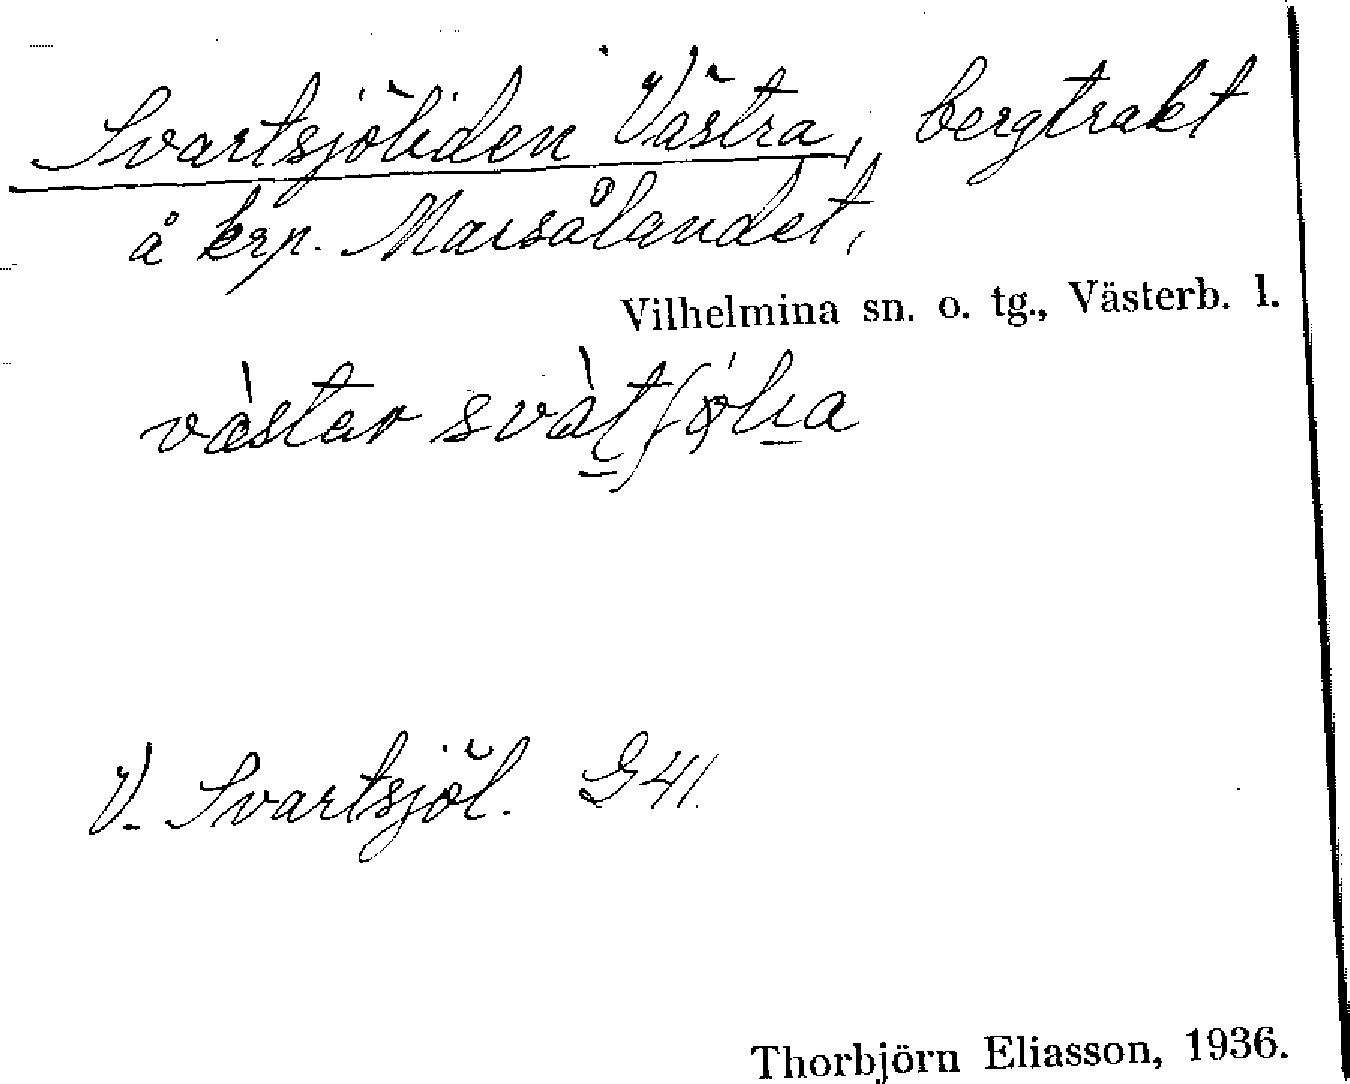 Svartsjöliden Västra, bergtrakt
å krp. Marsålandet,
Vilhelmina sn. o. tg., Västerb. l.
V. Svartsjöl. G41.
Thorbjörn Eliasson, 1936.